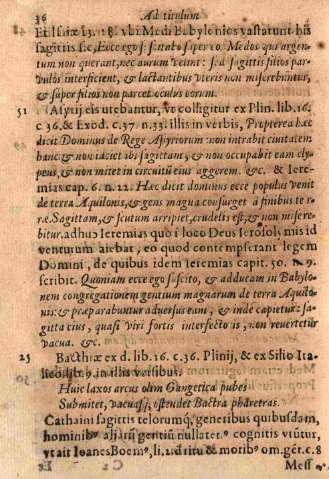 36 Ad titulum
Et Isaiæ 13. 18. vbi Medi Babylonios vastarunt his
sagittis sic, Ecce ego suscitabo super vo. Medos qui argen-
tum non querant, nec aurum velint: sed sagittis filios par-
vulos interficient, & lactantibus vteris non miserebuntur,
& super filios non parcet oculus eorum.
51 Assyrij eis utebantur, vt colligitur ex Plin. lib. 16.
c 36. & Exod. c. 37. n. 33. illis in verbis, Propterea hæc
dicit Dominus de Rege Assyriorum: non intrabit civitatem
hanc & non iaciet ibi sagittam, & non occupabit eam cly-
peus, & non mitet in circuitu eius aggerem. &c. & Iere-
mias cap. 6. n. 22. Hæc dicit dominus ecce populus venit
de terra Aquilonis, & gens magna consurget a finibus te r-
ræ. Sagittam, & scutum arripiet, crudelis est, & non misere-
bitur. adhuc Ieremias quo i loco Deus Ierosolymis id
venturum aiebat, eo quod contempserant legem
Domini, de quibus idem Ieremias capit. 50. n 9.
scribit. Quoniam ecce ego suscito, & adducam in Babylo-
nem congregationem gentium magnarum de terra Aquilo-
nis: & præparabuntur adversus eam, & inde capietur: sa-
gitta eius, quasi viri fortis interfecto is, non revertetur
vacua. &c.
25 Bacthræ ex d. lib. 16. c. 36. Plinij, & ex Silio Ita-
lico lib. 9. in illis versibus.
Huic laxos arcus olim Gangetica pubes
Submitet, vacuasq; ostendet Bactra pharetras.
Cathaini sagittis telorumq; generibus quibusdam,
hominibꝰ aliarū gentiū nullatenꝰ cognitis vtūtur,
vt ait Ioanes Boemꝰ, li. 2. d ritu & moribꝰ om. gēt. c. 8
Ec C2 Mess